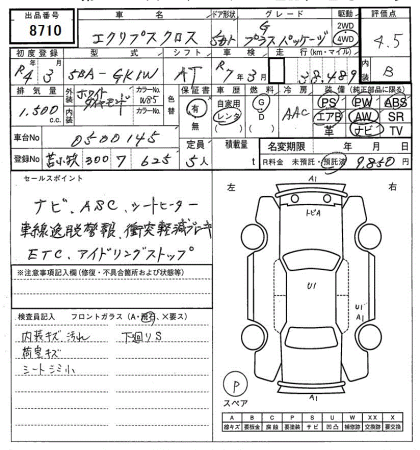 出品番号 車名 ドア形状 グレード 駆動 評価点
8710 エクリプスクロス 5ドア G プラスパッケージ 2WD 4WD 4.5
初度登録 型式 シフト 車検 走行(km・マイル) 内装
R4.3 5BA-GK1W AT R7年3月 38,489 B
排気量 外装 ホワイトダイヤモンド カラーNo. W85 色替 保証書 車歴 燃料 冷房 装備(純正部品に限る)
1.500 c.c. 内装 カラーNo. 有 無 自家用 レンタ G D AAC PS PW ABS
エアB AW SR
革 ナビ TV
車台No 0500145 定員 積載量 名変期限 年 月 日
登録No 300 7 625 5人 t R料金 未預託・預託済 9,850円
セールスポイント
ナビ、ASC、シートヒーター
車線逸脱警報、衝突軽減ブレーキ
ETC、アイドリングストップ
※注意事項記入欄(修復・不具合箇所および状態等)
検査員記入 フロントガラス(A・飛石、X要ス)
内装キズ汚れ 下廻りS
荷室キズ
シートシミ小
左 右
A1
トビA
U1
U1
A1
A1
P
スペア
A B C P S U W X XX
線キズ 要板金 腐蝕 要塗装 サビ 凹凸 補修跡 要交換 交換済